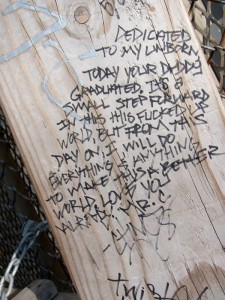 DEDICATED
TO MY UNBORN
TODAY YOUR DADDY
GRADUATED. IT'S A
SMALL STEP FORWARD
IN THIS FUCKED UP
WORLD, BUT FROM THIS
DAY ON I WILL DO
EVERYTHING & ANYTHING
TO MAKE THIS A BETTER
WORLD. LOVE YOU
ALREADY, MR. C